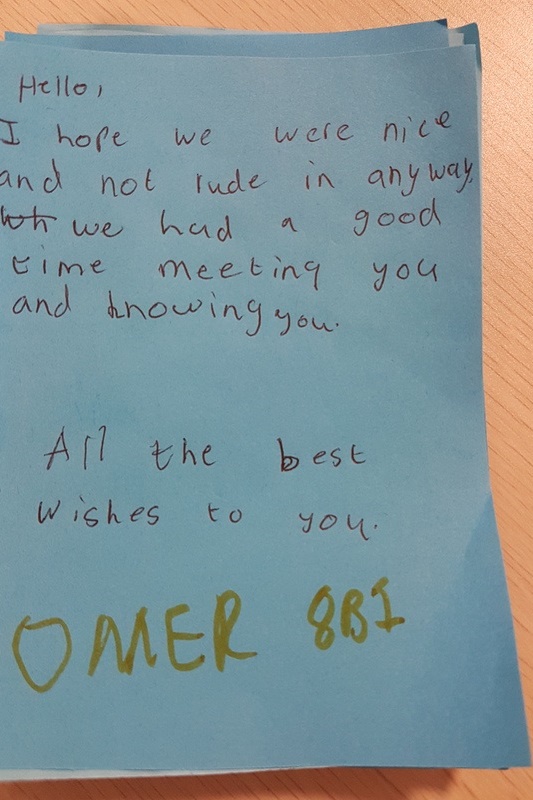 Hello,
I hope we were nice
and not rude in anyway.
we had a good
time meeting you
and knowing you.
All the best
wishes to you.
OMER 8BI